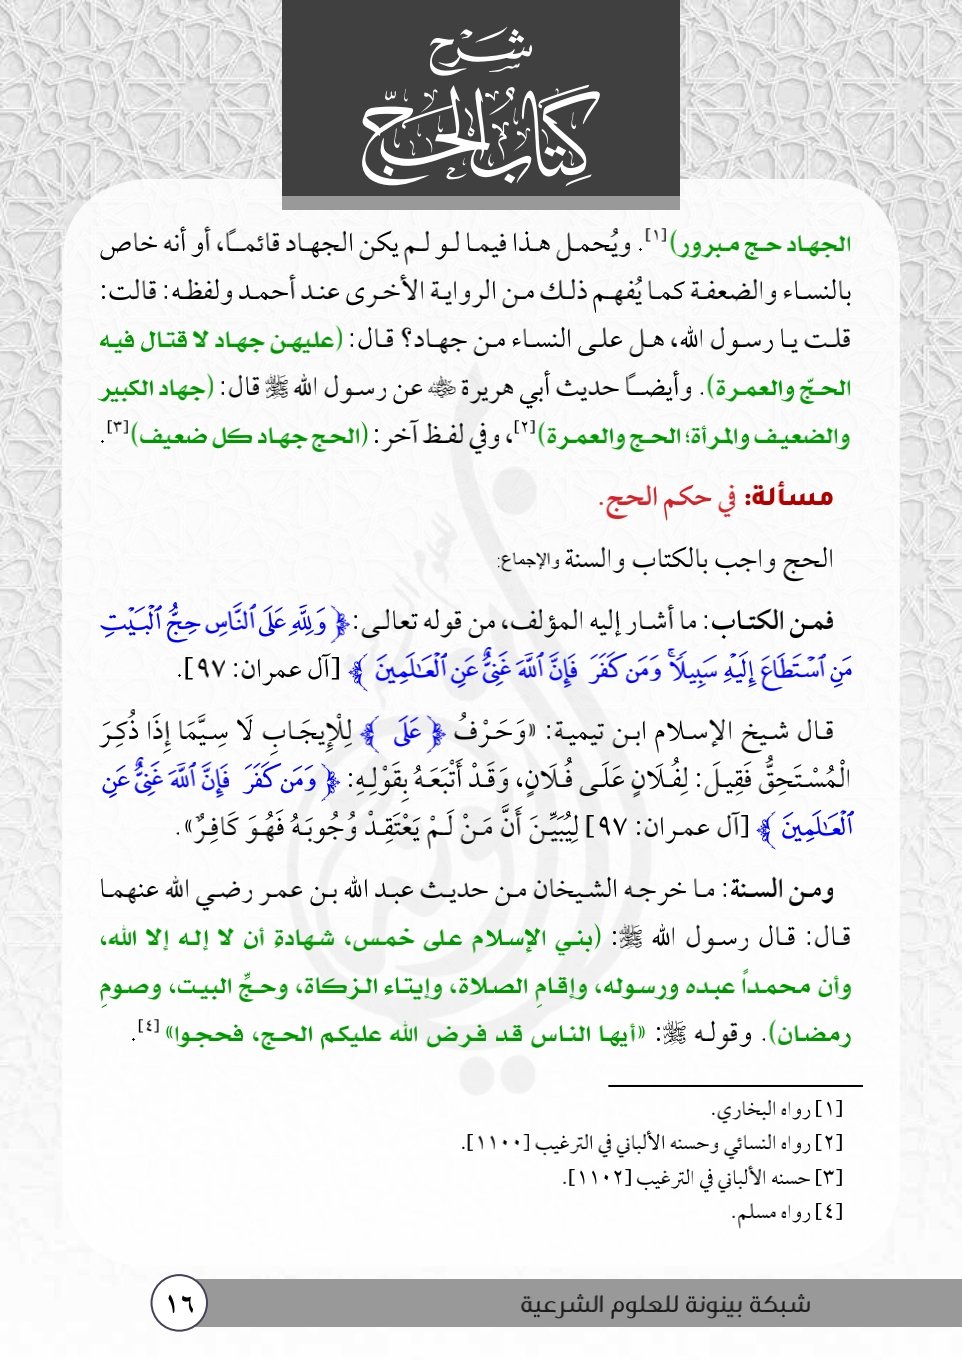 شرح
كتاب الحج
الجهاد حج مبرور)[١]. ويُحمل هذا فيما لو لم يكن الجهاد قائمـًا، أو أنه خاص
بالنساء والضعفة كما يُفهم ذلك من الرواية الأخرى عند أحمد ولفظه: قالت:
قلت يا رسول الله، هل على النساء من جهاد؟ قال: (عليهن جهاد لا قتال فيه
الحجّ والعمرة). وأيضـًا حديث أبي هريرة ﵁ عن رسول الله ﷺ قال: (جهاد الكبير
والضعيف والمرأة؛ الحج والعمرة)[٢]، وفي لفظ آخر: (الحج جهاد كل ضعيف)[٣].
مسألة: في حكم الحج.
الحج واجب بالكتاب والسنة والإجماع:
فمن الكتاب: ما أشار إليه المؤلف، من قوله تعالى: ﴿ وَلِلَّهِ عَلَى ٱلنَّاسِ حِجُّ ٱلۡبَيۡتِ
مَنِ ٱسۡتَطَاعَ إِلَيۡهِ سَبِيلٗاۚ وَمَن كَفَرَ فَإِنَّ ٱللَّهَ غَنِيٌّ عَنِ ٱلۡعَٰلَمِينَ ﴾ [آل عمران: ٩٧].
قال شيخ الإسلام ابن تيمية: «وَحَرْفُ ﴿ عَلَى ﴾ لِلْإِيجَابِ لَا سِيَّمَا إِذَا ذُكِرَ
الْمُسْتَحِقُّ فَقِيلَ: لِفُلَانٍ عَلَى فُلَانٍ، وَقَدْ أَتْبَعَهُ بِقَوْلِهِ: ﴿ وَمَن كَفَرَ فَإِنَّ ٱللَّهَ غَنِيٌّ عَنِ
ٱلۡعَٰلَمِينَ ﴾ [آل عمران: ٩٧] لِيُبَيِّنَ أَنَّ مَنْ لَمْ يَعْتَقِدْ وُجُوبَهُ فَهُوَ كَافِرٌ».
ومن السنة: ما خرجه الشيخان من حديث عبد الله بن عمر رضي الله عنهما
قال: قال رسول الله ﷺ: (بني الإسلام على خمس، شهادةِ أن لا إله إلا الله،
وأن محمداً عبده ورسوله، وإقامِ الصلاة، وإيتاء الزكاة، وحجِّ البيت، وصومِ
رمضان). وقوله ﷺ: «أيها الناس قد فرض الله عليكم الحج، فحجوا» [٤].
[١] رواه البخاري.
[٢] رواه النسائي وحسنه الألباني في الترغيب [١١٠٠].
[٣] حسنه الألباني في الترغيب [١١٠٢].
[٤] رواه مسلم.
شبكة بينونة للعلوم الشرعية
١٦